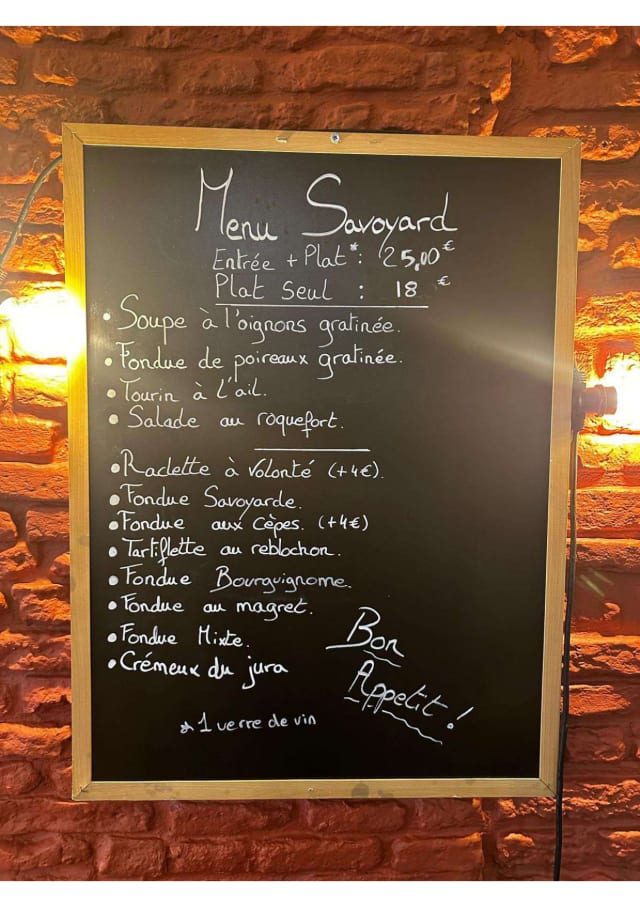 Menu Savoyard
Entrée + Plat*: 25,00€
Plat seul : 18 €
• Soupe à l'oignons gratinée.
• Fondue de poireaux gratinée.
• Tourin à l'ail.
• Salade au roquefort.
• Raclette à volonté (+4€).
• Fondue Savoyarde.
• Fondue aux cèpes. (+4€)
• Tartiflette au reblochon.
• Fondue Bourguignome.
• Fondue au magret.
• Fondue Mixte.
• Crémeux du jura
Bon
Appetit!
* 1 verre de vin